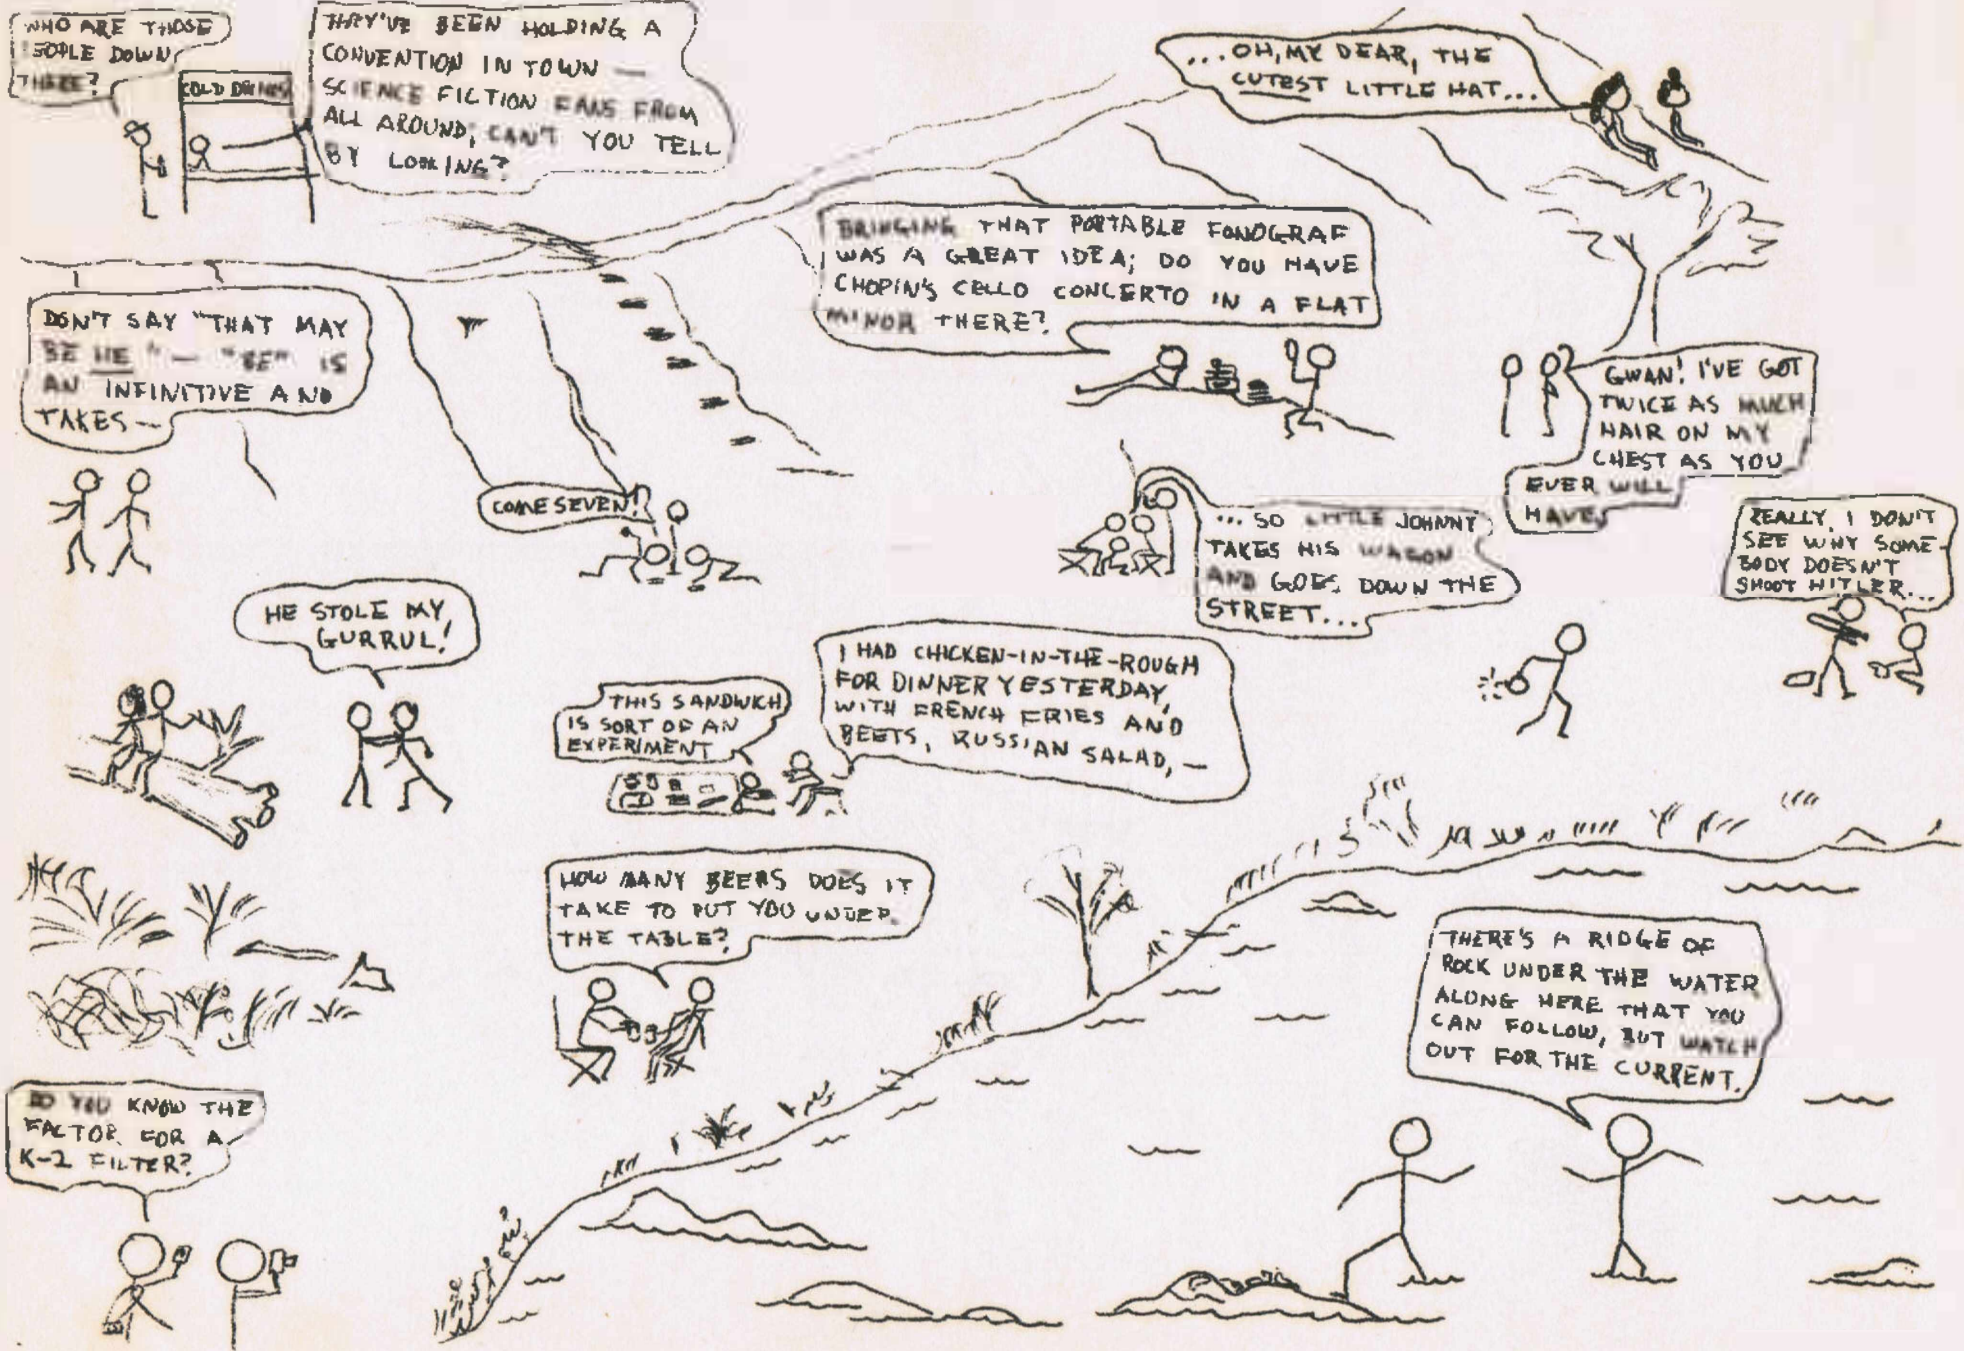 WHO ARE THOSE
PEOPLE DOWN
THERE?
COLD DRINKS
THEY'VE BEEN HOLDING A
CONVENTION IN TOWN —
SCIENCE FICTION FANS FROM
ALL AROUND; CAN'T YOU TELL
BY LOOKING?
...OH, MY DEAR, THE
CUTEST LITTLE HAT...
BRINGING THAT PORTABLE FONOGRAF
WAS A GREAT IDEA; DO YOU HAVE
CHOPIN'S CELLO CONCERTO IN A FLAT
MINOR THERE?
DON'T SAY "THAT MAY
BE HE" — "BE" IS
AN INFINITIVE AND
TAKES —
GWAN! I'VE GOT
TWICE AS MUCH
HAIR ON MY
CHEST AS YOU
EVER WILL
HAVE
COME SEVEN!
... SO LITTLE JOHNNY
TAKES HIS WAGON
AND GOES DOWN THE
STREET...
REALLY, I DON'T
SEE WHY SOME-
BODY DOESN'T
SHOOT HITLER...
HE STOLE MY
GURRUL!
THIS SANDWICH
IS SORT OF AN
EXPERIMENT
I HAD CHICKEN-IN-THE-ROUGH
FOR DINNER YESTERDAY,
WITH FRENCH FRIES AND
BEETS, RUSSIAN SALAD, —
HOW MANY BEERS DOES IT
TAKE TO PUT YOU UNDER
THE TABLE?
THERE'S A RIDGE OF
ROCK UNDER THE WATER
ALONG HERE THAT YOU
CAN FOLLOW, BUT WATCH
OUT FOR THE CURRENT.
DO YOU KNOW THE
FACTOR FOR A
K-2 FILTER?